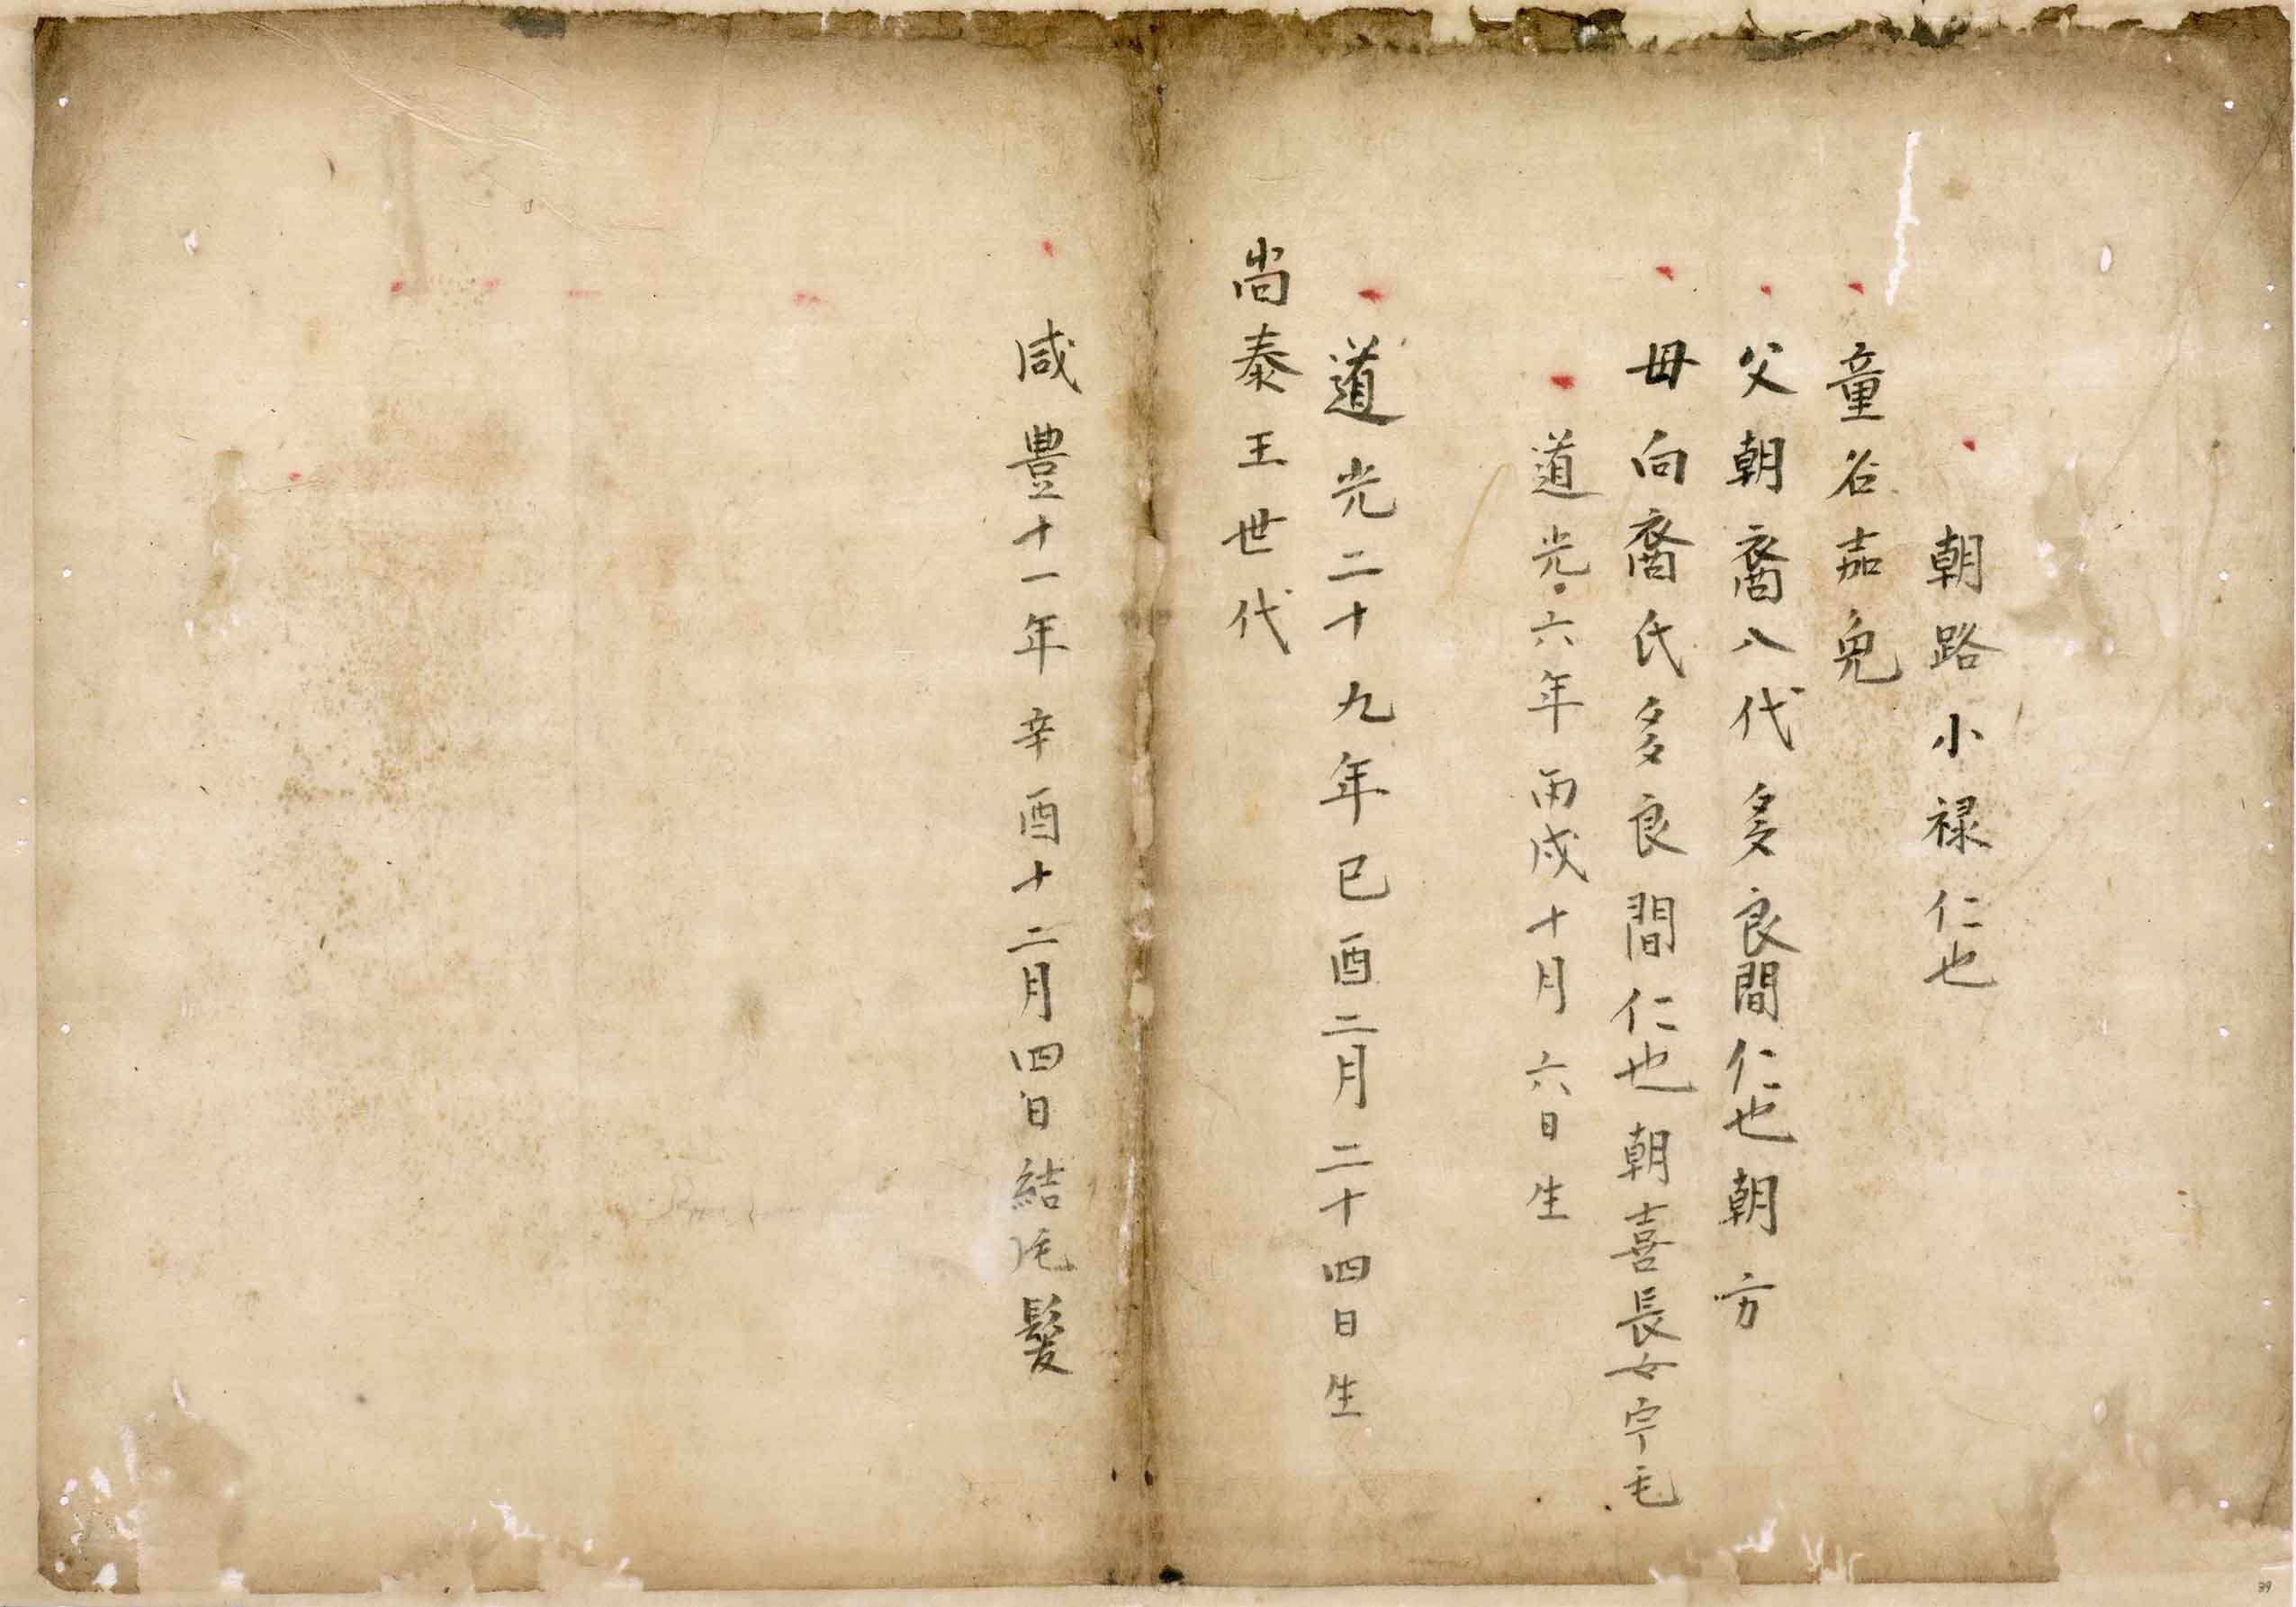 朝路小禄仁也
童名嘉免
父朝裔八代多良間仁也朝方
母向裔氏多良間仁也朝喜長女宇毛
道光六年丙戌十月六日生
道光二十九年己酉二月二十四日生
尚泰王世代
咸豊十一年辛酉十二月四日結髪
39